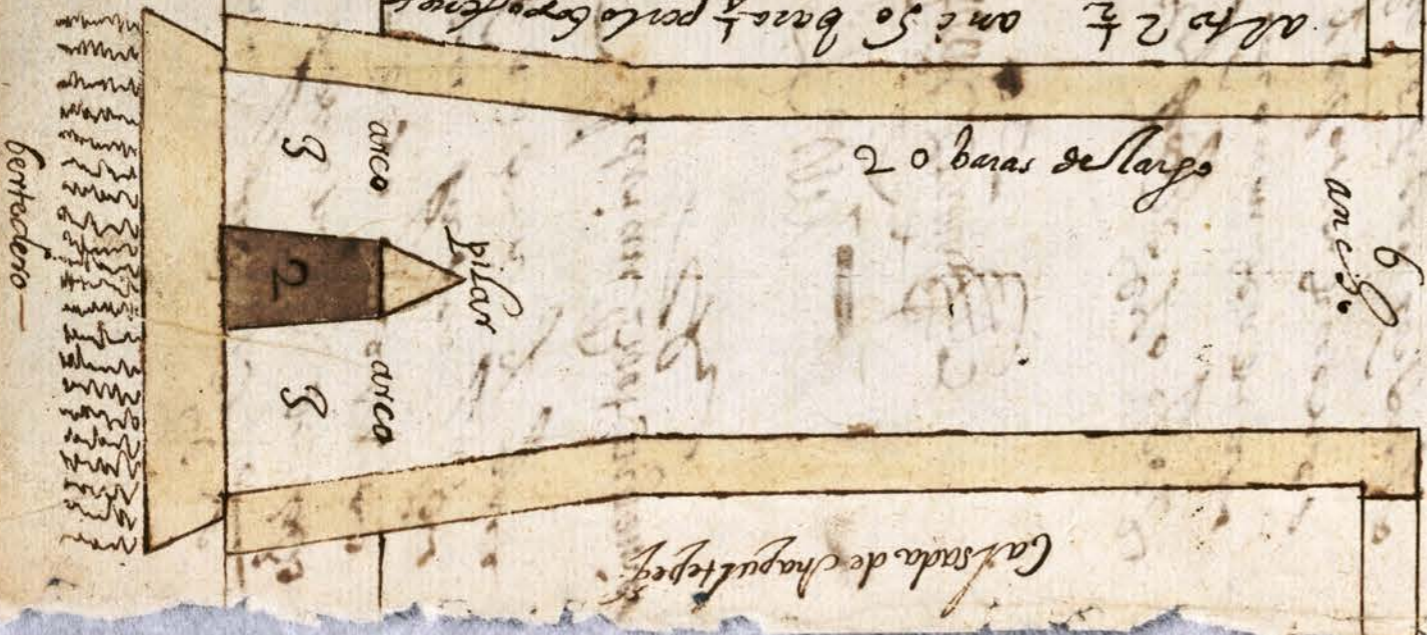 alto 2 ½ ancho bara ½ por lo
arco
3
2 0 baras de largo
6
ancho
2
pilar
arco
3
bertedero
Calsada de chapultepeq